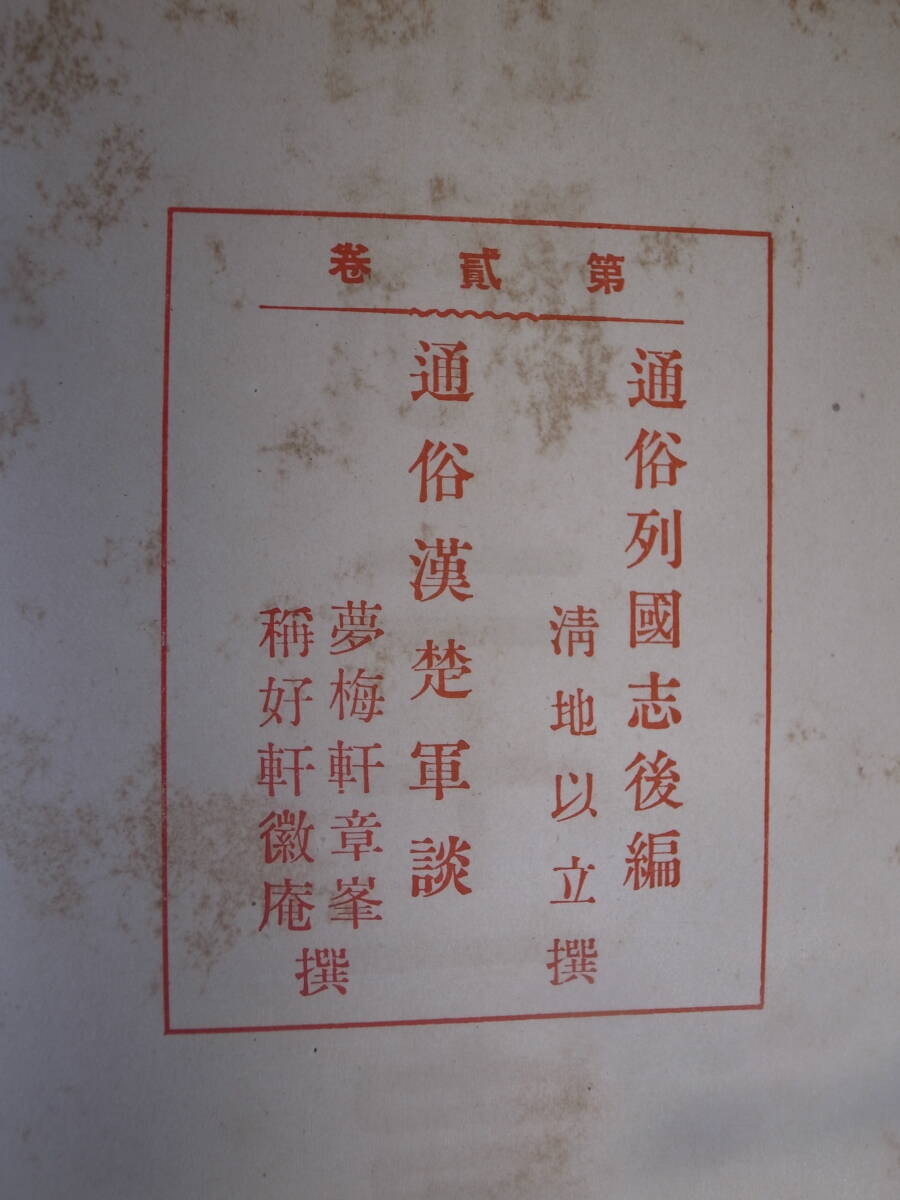 第貳卷
通俗列國志後編
淸地以立撰
通俗漢楚軍談
夢梅軒章峯
稱好軒徽庵
撰